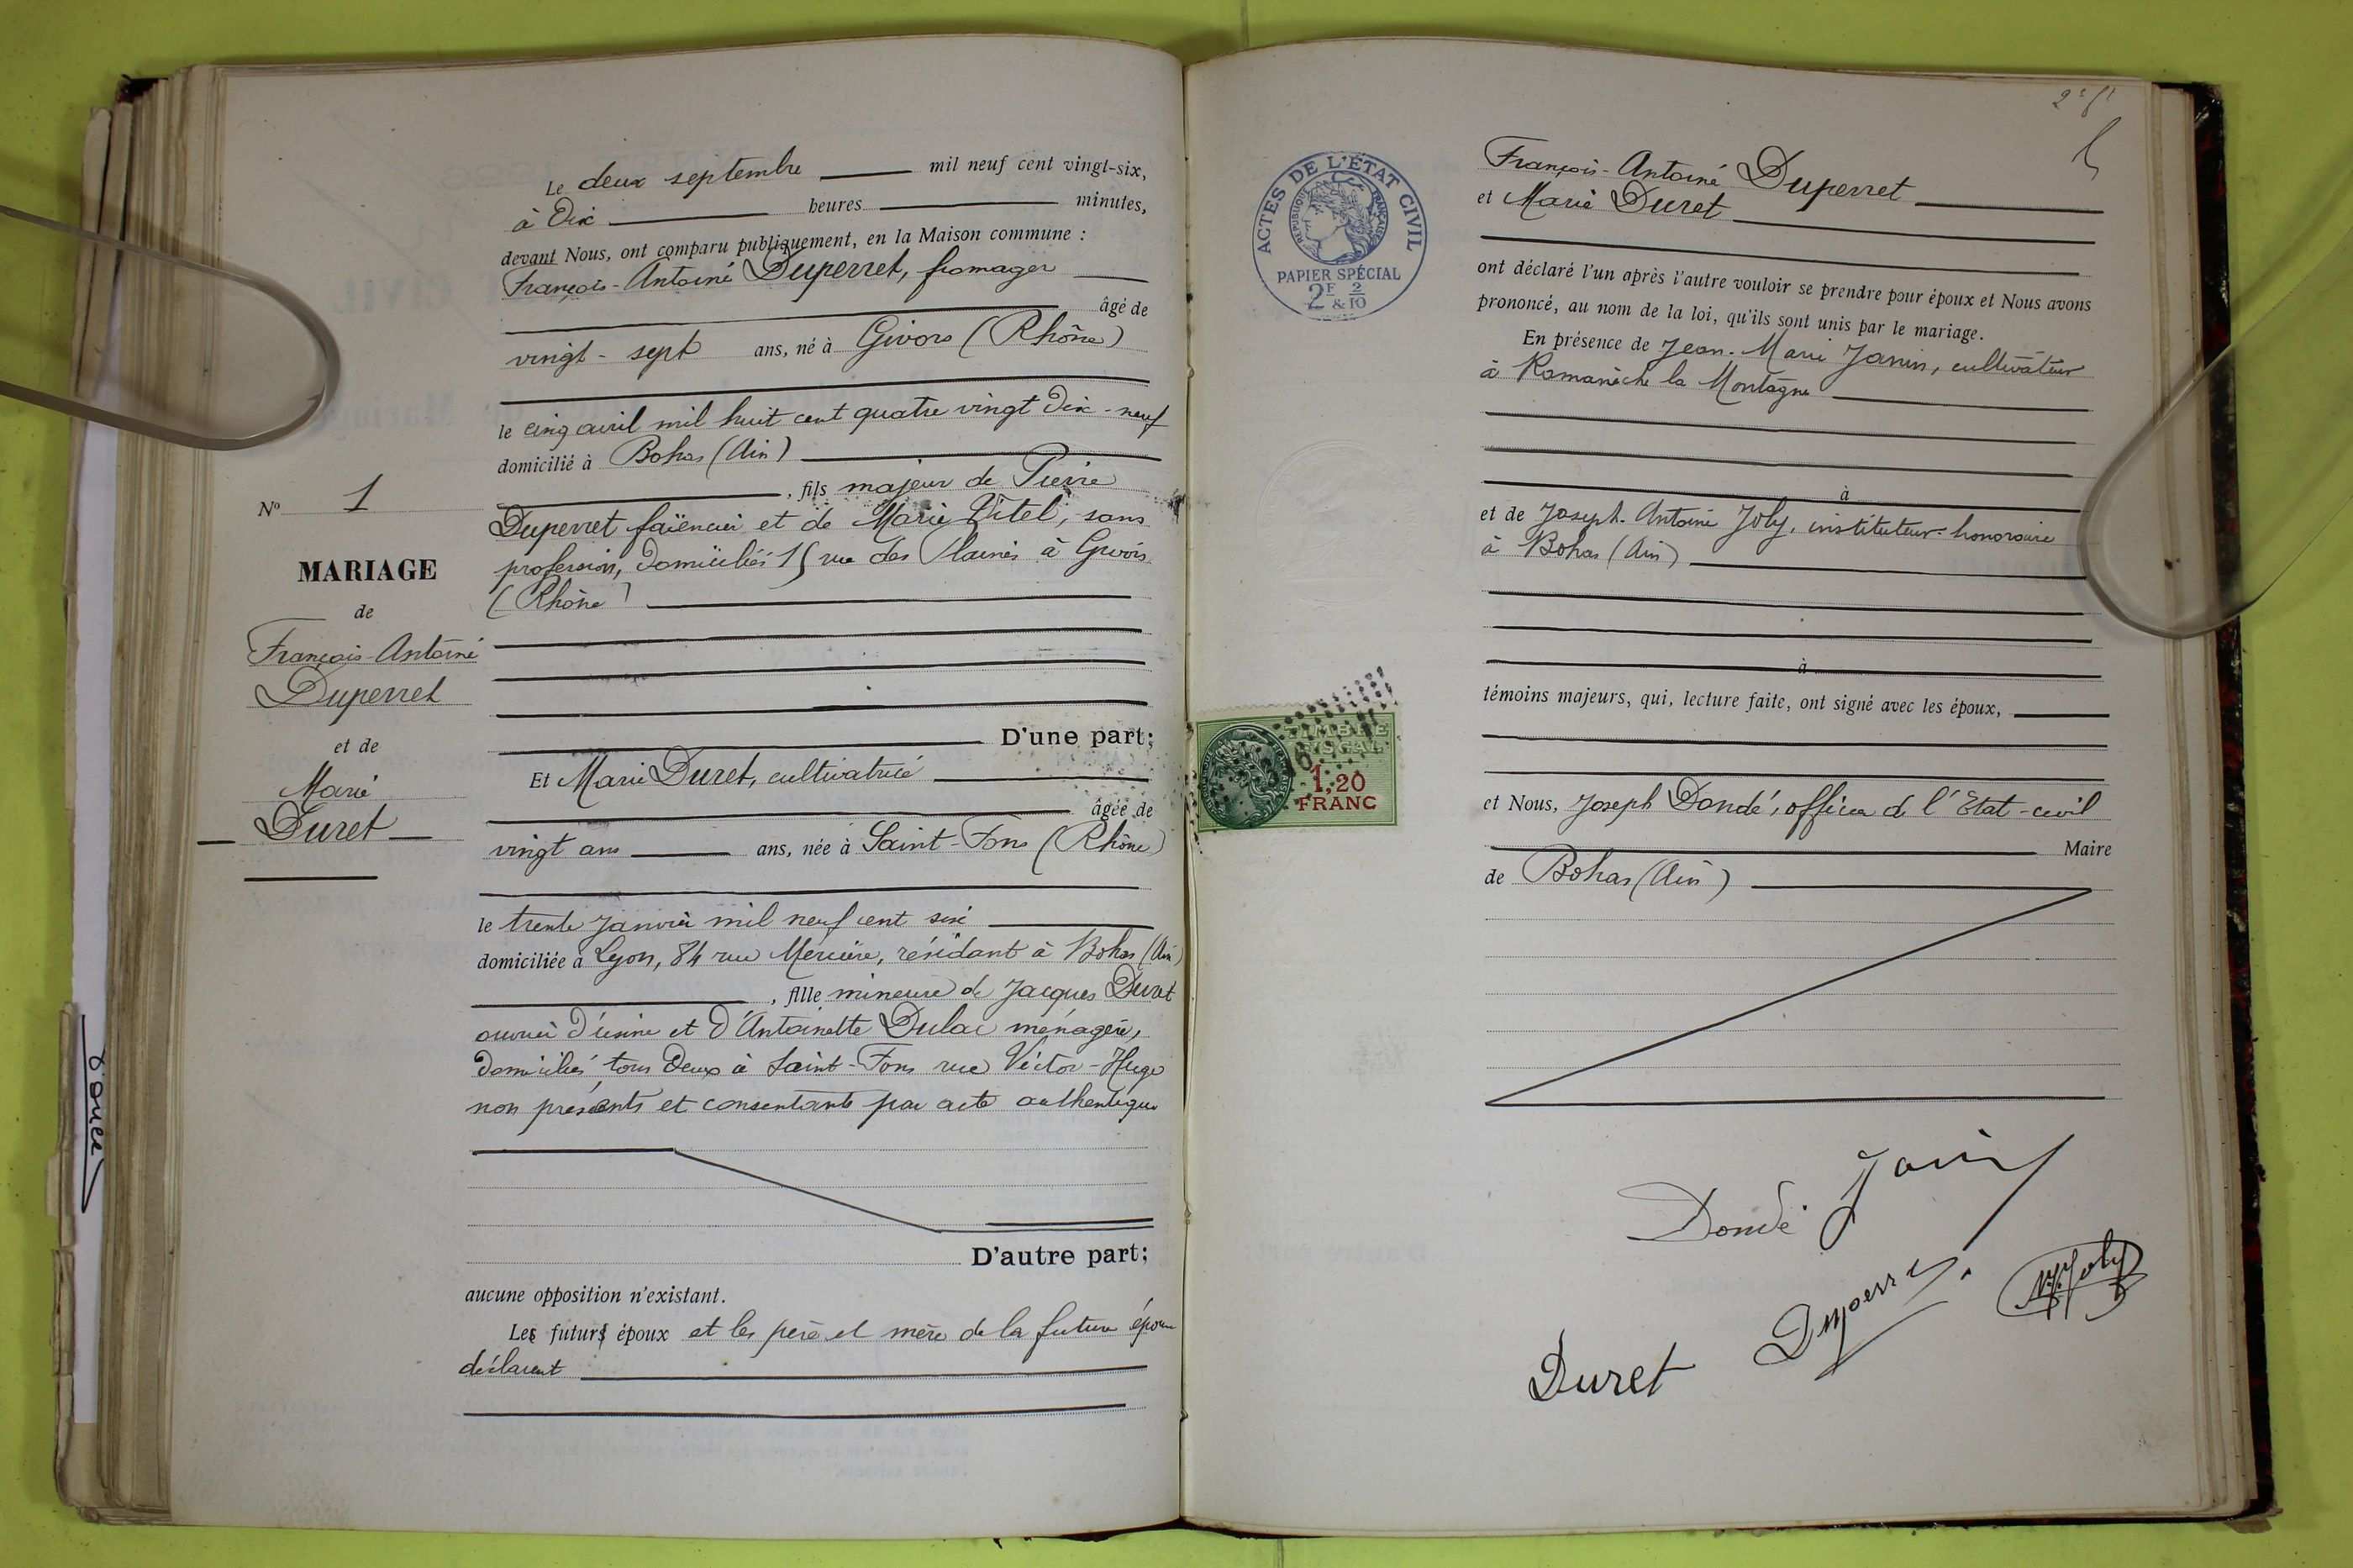 Le deux septembre mil neuf cent vingt-six,
à Dix heures minutes,
devant Nous, ont comparu publiquement, en la Maison commune :
François-Antoine Duperret, fromager
âgé de
vingt-sept ans, né à Givors (Rhône)
le cinq avril mil huit cent quatre vingt dix-neuf
domicilié à Bohas (Ain)
, fils majeur de Pierre
Duperret faïencier et de Marie Vitel, sans
profession, domiciliés 15 rue des Plaines à Givors
(Rhône)
D'une part;
Et Marie Duret, cultivatrice
âgée de
vingt ans ans, née à Saint-Fons (Rhône)
le trente janvier mil neuf cent six
domiciliée à Lyon, 84 rue Mercière, résidant à Bohas (Ain)
, fille mineure de Jacques Duret
ouvrier d'usine et d'Antoinette Dulac ménagère,
domiciliés tous deux à Saint-Fons rue Victor-Hugo
non présents et consentants par acte authentique
D'autre part;
aucune opposition n'existant.
Les futurs époux et les père et mère de la future épouse
déclarent
No 1
MARIAGE
de
François-Antoine
Duperret
et de
Marie
Duret
ACTES DE L'ÉTAT CIVIL
RÉPUBLIQUE FRANÇAISE
PAPIER SPÉCIAL
2F & 2/10
TIMBRE
FISCAL
1,20
FRANC
François-Antoine Duperret
et Marie Duret
ont déclaré l'un après l'autre vouloir se prendre pour époux et Nous avons
prononcé, au nom de la loi, qu'ils sont unis par le mariage.
En présence de Jean-Marie Janin, cultivateur
à Romanèche la Montagne
à
et de Joseph-Antoine Joly, instituteur-honoraire
à Bohas (Ain)
à
témoins majeurs, qui, lecture faite, ont signé avec les époux,
et Nous, Joseph Dondé, officier de l'Etat-civil
Maire
de Bohas (Ain)
Janin
Dondé
Joly
Duperret
Duret